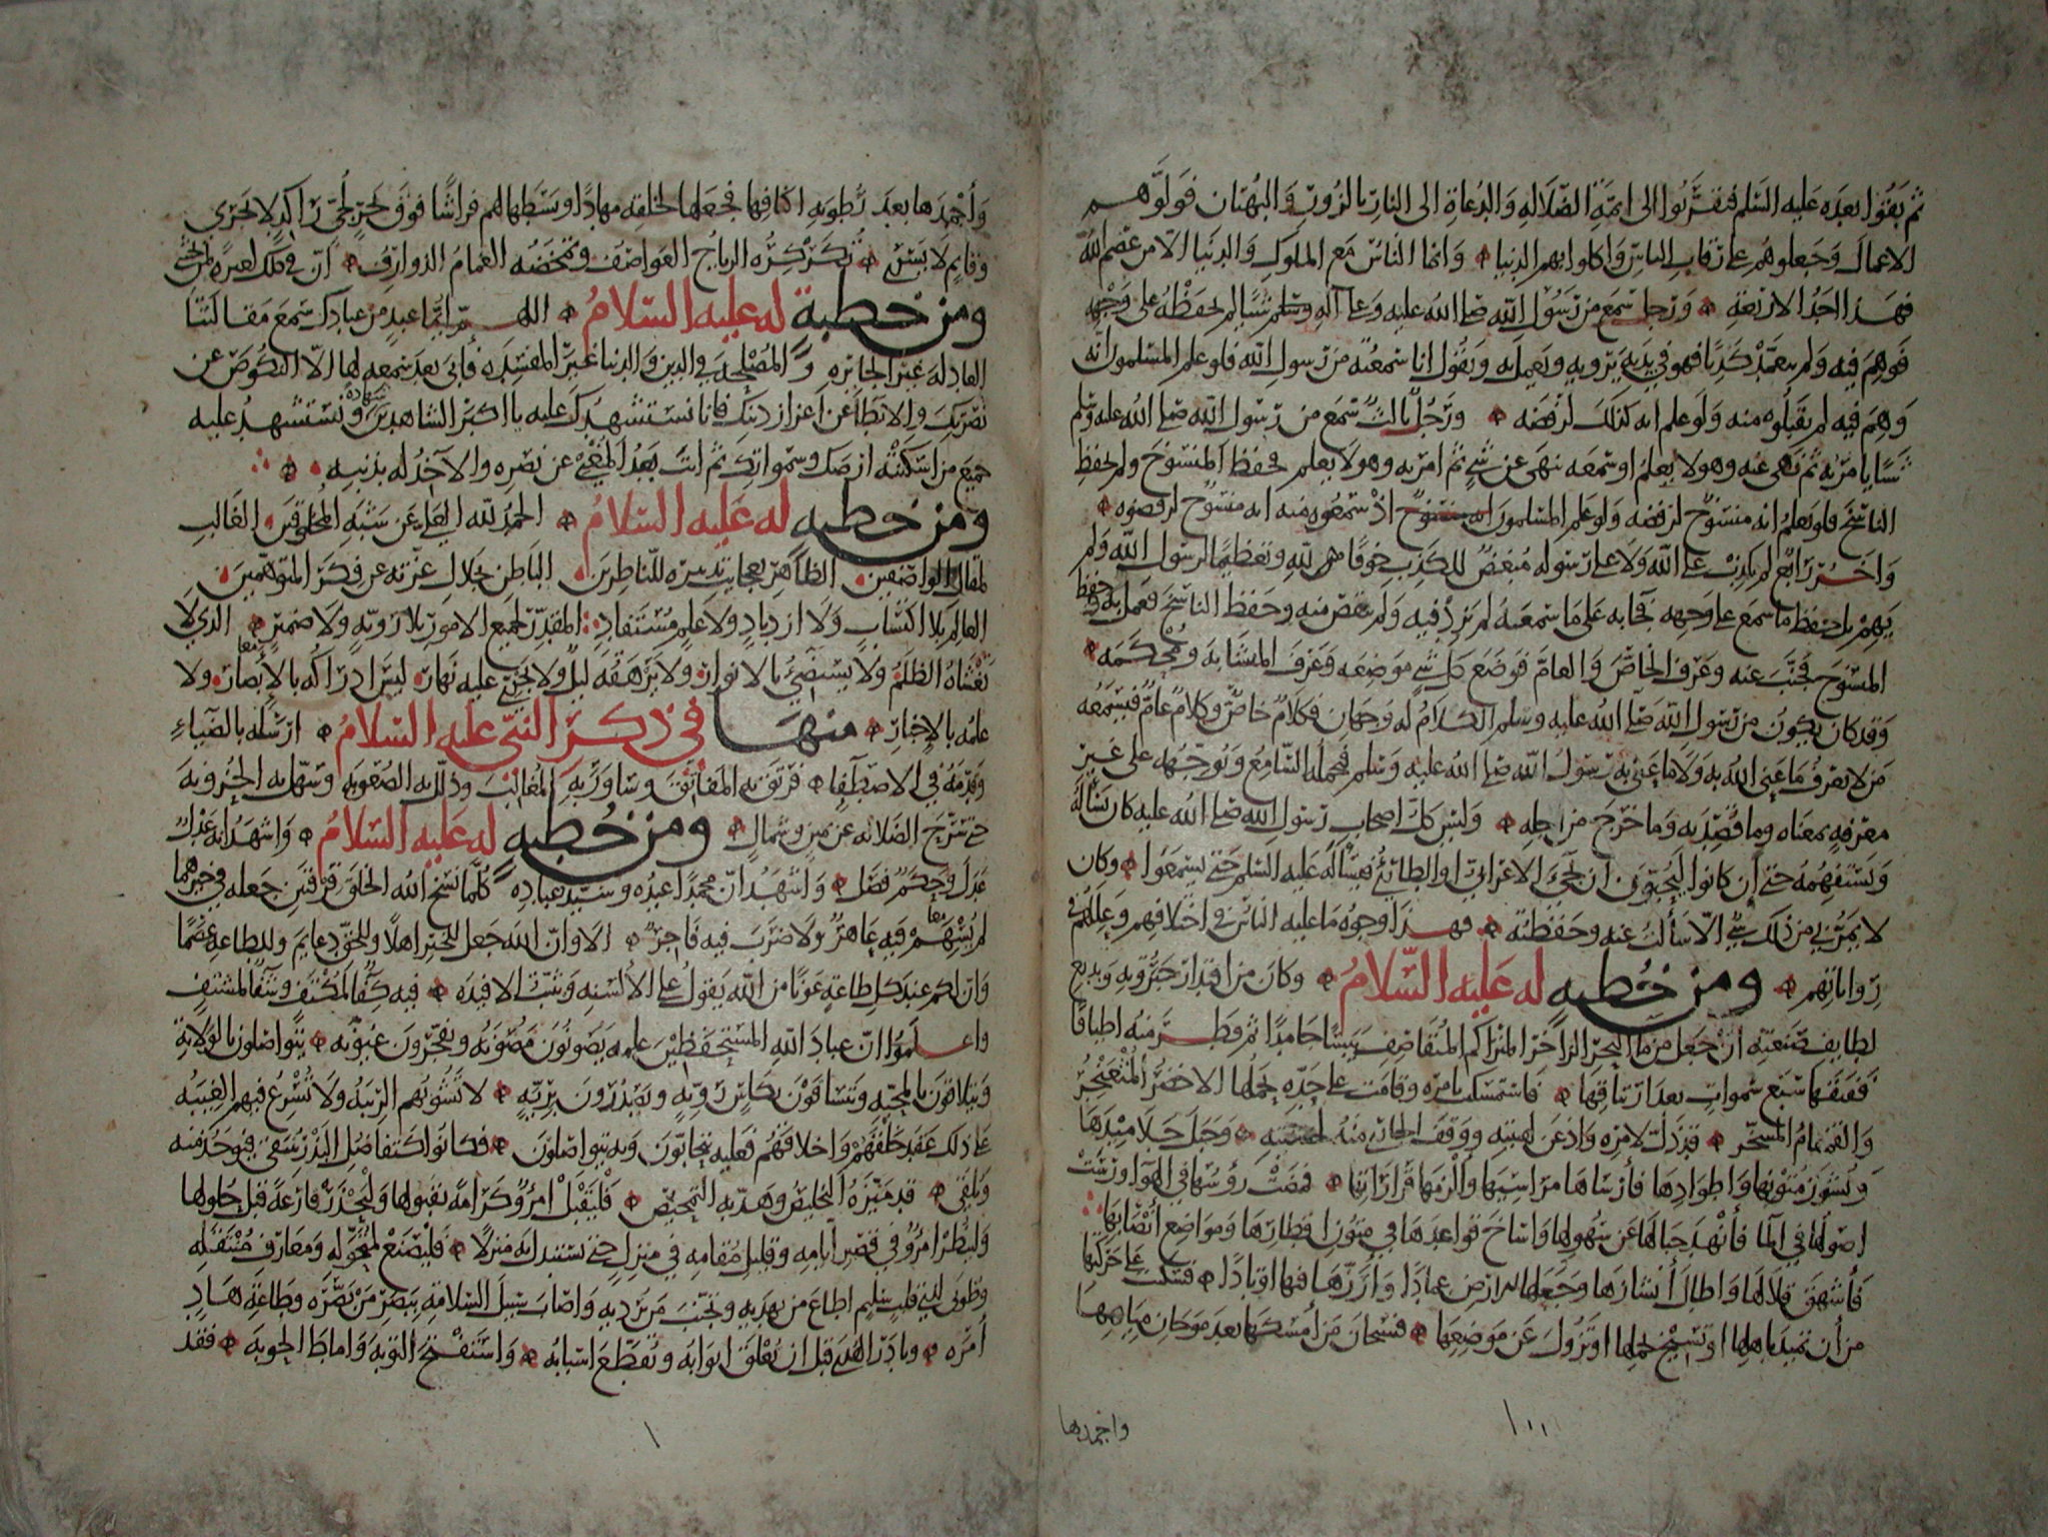 ثم بقوا بعده عليه السلم فتقربوا الى ايمة الضلالة والدعاة الى النار بالزور والبهتان فولوهم
الاعمال وجعلوهم على رقاب الناس واكلوا بهم الدنيا وانما الناس مع الملوك والدنيا الا من عصم الله
فهذا احد الاربعة ورجل سمع من رسول الله صلى الله عليه وعلى آله وسلم شيئا لم يحفظه على وجهه
فوهم فيه ولم يتعمد كذبا فهو في يديه يرويه ويعمل به ويقول انا سمعته من رسول الله فلو علم المسلمون انه
وهم فيه لم يقبلوه منه ولو علم انه كذلك لرفضه ورجل ثالث سمع من رسول الله صلى الله عليه وسلم
شيئا يامر به ثم نهى عنه وهو لا يعلم او سمعه نهى عن شي ثم امر به وهو لا يعلم فحفظ المنسوخ ولم يحفظ
الناسخ فلو يعلم انه منسوخ لرفضه ولو علم المسلمون اذ سمعوه منه انه منسوخ لرفضوه
واخر رابع لم يكذب على الله ولا على رسوله مبغض للكذب خوفا من لله وتعظيما لرسول الله ولم
يهم بل حفظ ما سمع على وجهه فجا به على ما سمعه لم يزد فيه ولم ينقص منه وحفظ الناسخ فعمل به وحفظ
المنسوخ فجنب عنه وعرف الخاص والعام فوضع كل شي موضعه وعرف المتشابه ومحكمه
وقد كان يكون من رسول الله صلى الله عليه وسلم الكلام له وجهان فكلام خاص وكلام عام فيسمعه
من لا يعرف ما عنى الله به ولا ما عنى به رسول الله صلى الله عليه وسلم فيحمله السامع ويوجهه على غير
معرفة بمعناه وما قصد به وما خرج من اجله وليس كل اصحاب رسول الله صلى الله عليه كان يسأله
ويستفهمه حتى إن كانوا ليحبون ان يجي الاعرابي او الطائي فيسأله عليه السلم حتى يسمعوا وكان
لا يمر بي من ذلك شي الا سألت عنه وحفظته فهذا وجوه ما عليه الناس في اختلافهم وعللهم في
رواياتهم ومن خطبه له عليه السلام وكان من اقتدار جبروته وبديع
لطايف صنعته ان جعل من ما البحر الزاخر المتراكم المتقاصف يبسا جامدا ثم فطر منه اطباقا
ففتقها سبع سموات بعد ارتتاقها فاستمسكت بامره وقامت على حده يحملها الاخضر المثعنجر
والقمقام المسخر قد ذل لامره واذعن لهيبته ووقف الجاري منه لخشيته وجبل جلاميدها
ونشوز متونها واطوادها فأرساها مراسيها والزمها قراراتها فمضت رؤسها في الهوا ورست
اصولها في الما فأنهد جبالها عن سهولها واساخ قواعدها في متون اقطارها ومواضع انصابها
فأشهق قلالها واطال انشازها وجعلها للارض عمادا وارزها فيها اوتادا فسكنت على حركتها
من أن تميد باهلها او تسيخ بحملها او تزول عن مواضعها فسبحان من أمسكها بعد موجان مياهها
واجمدها
١٠٠
واجمدها بعد رطوبه اكنافها فجعلها لخلقه مهادا وبسطها لهم فراشا فوق بحر لجي راكد لا يجري
وقايم لا يسري تكركره الرياح العواصف وتمخضه الغمام الذوارف ان في ذلك لعبرة لمن يخشى
ومن خطبة له عليه السلام اللهم ايما عبد من عبادك سمع مقالتنا
العادله غير الجائره والمصلحه في الدين والدنيا غير المفسده فأبى بعد سمعه لها الا النكوص عن
نصرتك والابطا عن اعزاز دينك فانا نستشهدك عليه يا اكبر الشاهدين شهادة ونستشهد عليه
جميع من اسكنته ارضك وسمواتك ثم انت بعد المغني عن نصره والآخذ له بذنبه
ومن خطبه له عليه السلام الحمد لله العلي عن شبه المخلوقين الغالب
لمقال الواصفين الظاهر بعجايب تدبيره للناظرين الباطن بجلال عزته عن فكر المتوهمين
العالم بلا اكتساب ولا ازدياد ولا علم مستفاد المقدر لجميع الامور بلا رويه ولا ضمير الذي لا
تغشاه الظلم ولا يستضئ بالانوار ولا يرهقه ليل ولا يجري عليه نهار ليس ادراكه بالابصار ولا
علمه بالإخبار منها في ذكر النبي عليه السلام ارسله بالضياء
وقدمه في الاصطفا فرتق به المفاتق وساور به المغالب وذلل به الصعوبه وسهل به الحزونة
حتى سرح الضلاله عن يمين وشمال ومن خطبه له عليه السلام واشهد انه عدل
عدل وحكم فصل واشهد ان محمدا عبده وسيد عباده كلما نسخ الله الخلق فرقتين جعله في خيرهما
لم يسهم فيه عاهر ولا ضرب فيه فاجر الا وان الله جعل للخير اهلا وللحق دعايم وللطاعه عصما
وان لكم عند كل طاعة عونا من الله يقول على الالسنه ويثبت الافيده فيه كفا لمكتف وشفا لمشتف
واعلموا ان عباد الله المستحفظين علمه يصونون مصونه ويفجرون عيونه يتواصلون بالولاية
ويتلاقون بالمحبه ويتساقون بكاس رويه ويصدرون بريه لا تشوبهم الريبه ولا تسرع فيهم الغيبه
على ذلك عقد خلقهم واخلاقهم فعليه يتحابون وبه يتواصلون فكانوا كتفاضل البذر ينتقى فيوخذ منه
ويلقى قد ميزه التخليص وهذبه التمحيص فليقبل امرؤ كرامة بقبولها وليحذر قارعة قبل حلولها
ولينظر امرؤ في قصير ايامه وقليل مقامه في منزل حتى يستبدل به منزلا فليصنع لمتحوله ومعارف منتقله
وطوبى لذي قلب سليم اطاع من يهديه وتجنب من يرديه واصاب سبيل السلامة ببصر من بصره وطاعة هاد
امره وبادر الهدى قبل ان تغلق ابوابه وتقطع اسبابه واستفتح التوبه واماط الحوبه فقد
١